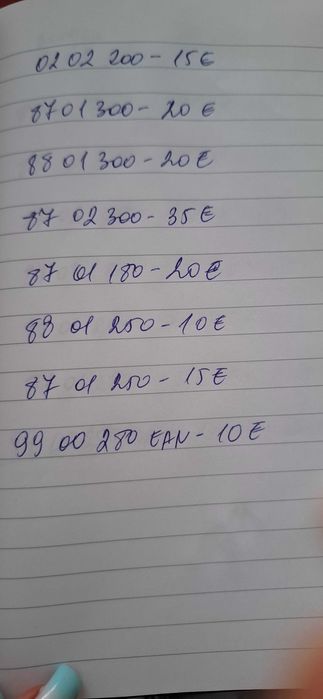 0202 200 - 15€
8701 300 - 20€
8801 300 - 20€
87 02 300 - 35€
87 01 180 - 20€
88 01 250 - 10€
87 01 250 - 15€
99 00 280 EAN - 10€